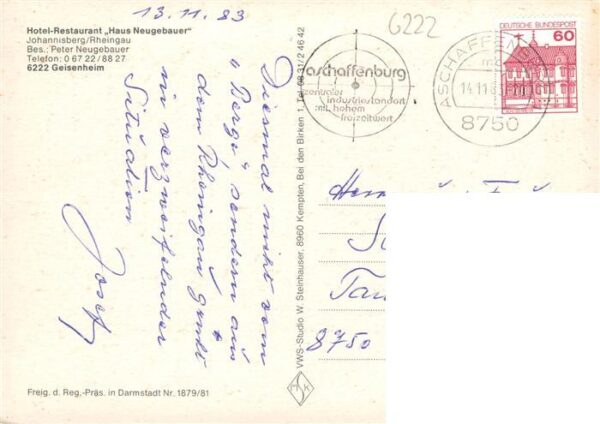 13.11.83
Hotel-Restaurant „Haus Neugebauer"
Johannisberg/Rheingau
Bes.: Peter Neugebauer
Telefon: 0 67 22 / 88 27
6222 Geisenheim
Diesmal nicht vom
"Berge", sondern aus
dem Rheingau grüßt
in verzweifelnder
Situation
Josef
Freig. d. Reg.-Präs. in Darmstadt Nr. 1879/81
VWS-Studio W. Steinhauser, 8960 Kempten, Bei den Birken 1, Tel. 08 31/2 46 42
6222
aschaffenburg
zentraler
industriestandort
mit hohem
freizeitwert
ASCHAFFENBURG
14.11.83
8750
DEUTSCHE BUNDESPOST
60
Herrn
8750